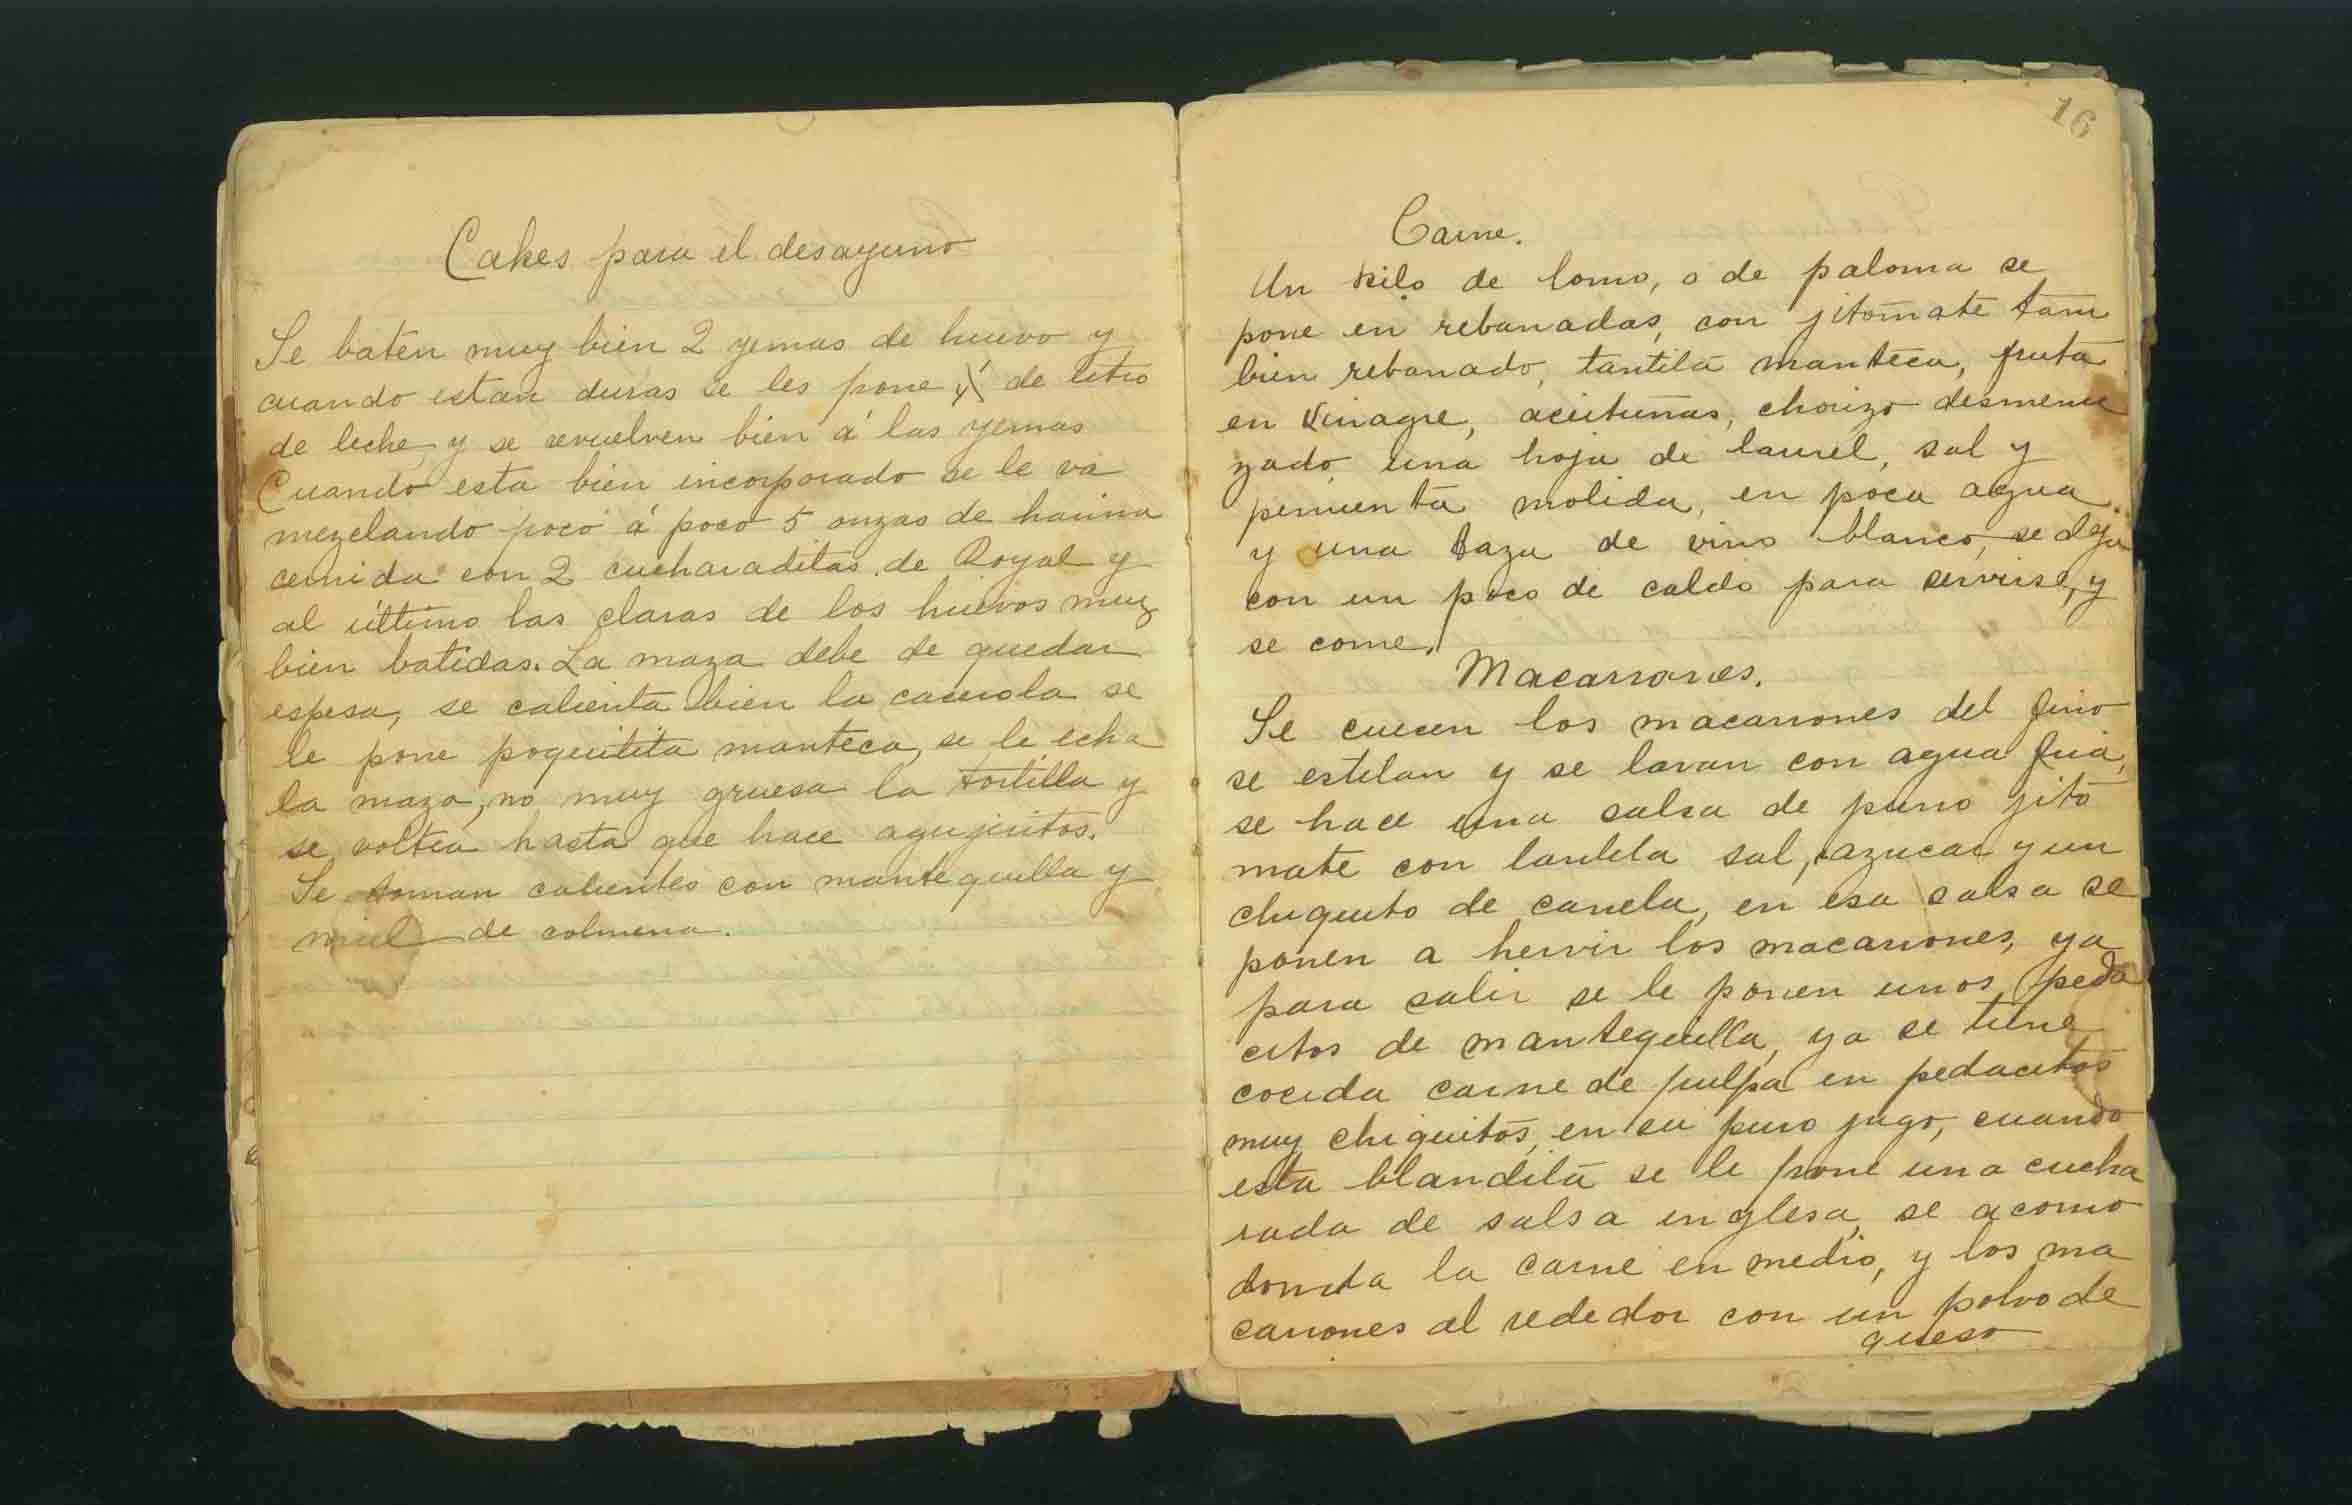 Cakes para el desayuno
Se baten muy bien 2 yemas de huevo y
cuando estan duras se les pone de litro
de leche, y se revuelven bien á las yemas
Cuando esta bien incorporado se le va
mezclando poco á poco 5 onzas de harina
cernida con 2 cucharaditas de Royal y
al último las claras de los huevos muy
bien batidas. La maza debe de quedar
espesa, se calienta bien la caserola se
le pone poquitita manteca, se le echa
la maza, no muy gruesa la tortilla y
se voltea hasta que hace agujeritos.
Se toman calientes con mantequilla y
miel de colmena.
16
Carne.
Un kilo de lomo, o de paloma se
pone en rebanadas, con jitomate tam
bien rebanado, tantita manteca, fruta
en vinagre, aceitunas, chorizo desmenu
zado, una hoja de laurel, sal y
pimienta molida, en poca agua
y una taza de vino blanco, se deja
con un poco de caldo para servirse, y
se come.
Macarrones.
Se cuecen los macarrones del fino
se estilan y se lavan con agua fria,
se hace una salsa de puro jito
mate con tantita sal, azucar y un
chiquito de canela, en esa salsa se
ponen a hervir los macarrones, ya
para salir se le ponen unos peda
citos de mantequilla, ya se tiene
cocida carne de pulpa en pedacitos
muy chiquitos, en su puro jugo, cuando
esta blandita se le pone una cucha
rada de salsa inglesa, se acomo
la carne en medio, y los ma
carrones al rededor con un polvo de
queso